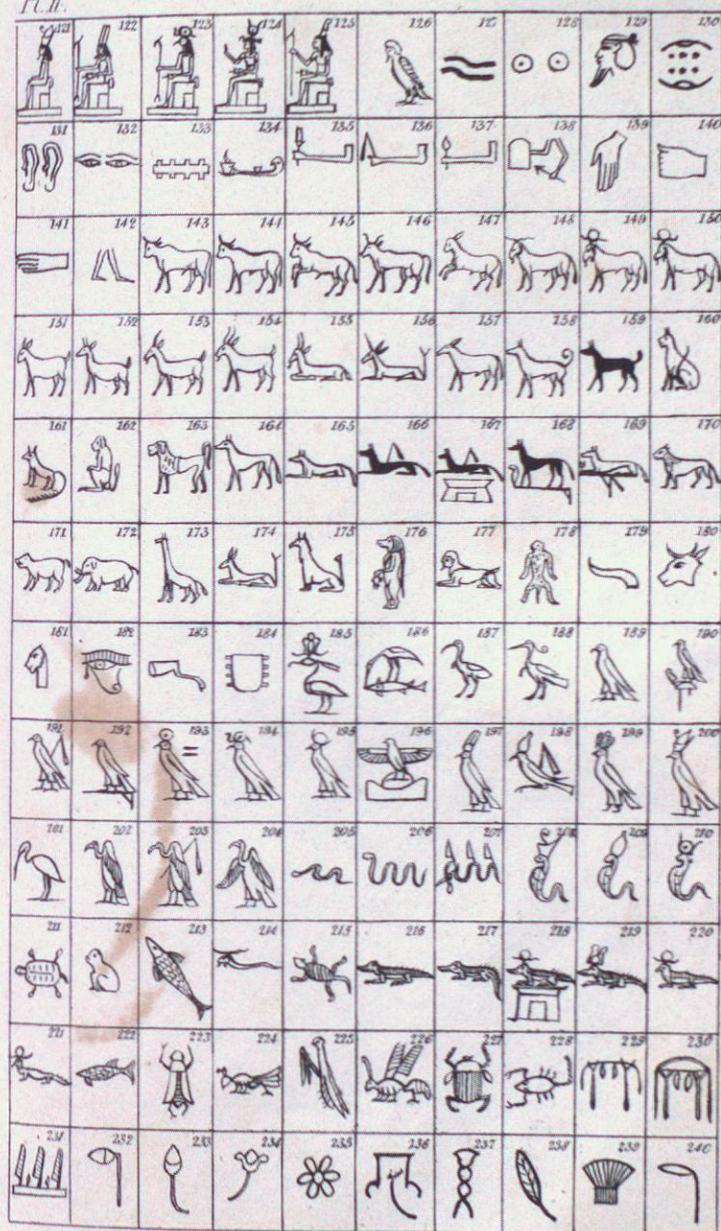 Pl. II.
121 122 123 124 125 126 127 128 129 130
131 132 133 134 135 136 137 138 139 140
141 142 143 144 145 146 147 148 149 150
151 152 153 154 155 156 157 158 159 160
161 162 163 164 165 166 167 168 169 170
171 172 173 174 175 176 177 178 179 180
181 182 183 184 185 186 187 188 189 190
191 192 193 194 195 196 197 198 199 200
201 202 203 204 205 206 207 208 209 210
211 212 213 214 215 216 217 218 219 220
221 222 223 224 225 226 227 228 229 230
231 232 233 234 235 236 237 238 239 240